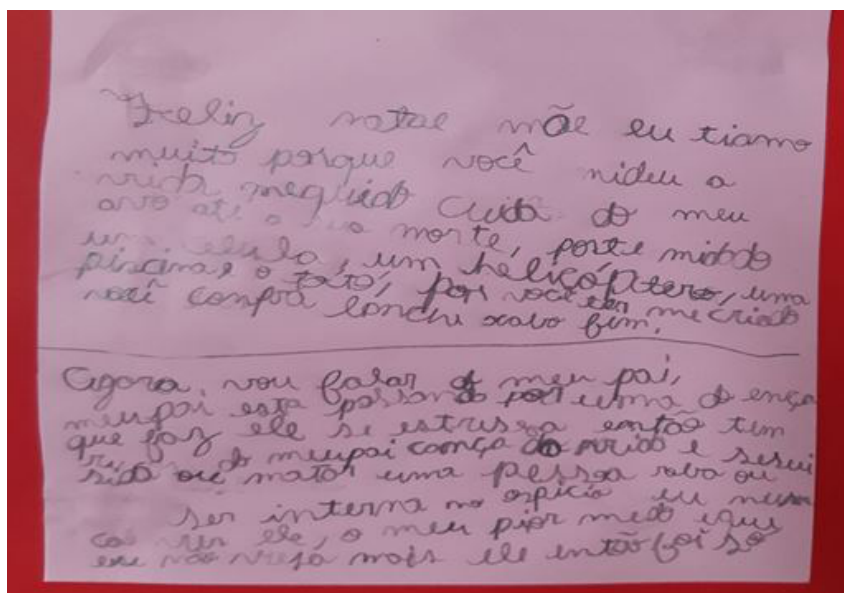 Feliz natal mãe eu tiamo
muito porque você mideu a
vida meguido cuida do meu
avo até a sua morte, porte midado
um celula, um helicóptero, uma
piscina, e o totó, por você ter me criado
você compra lonchi xabo fim.
Agora, vou falar do meu pai,
meu pai esta passando por uma doença
que faz ele se estresa então tem
do meupai comça do e sesui
sido ou mator uma pessoa roba ou
ser interna no ospicio eu
ver ele, o meu pior medo eque
eu não veja mais ele então foi só